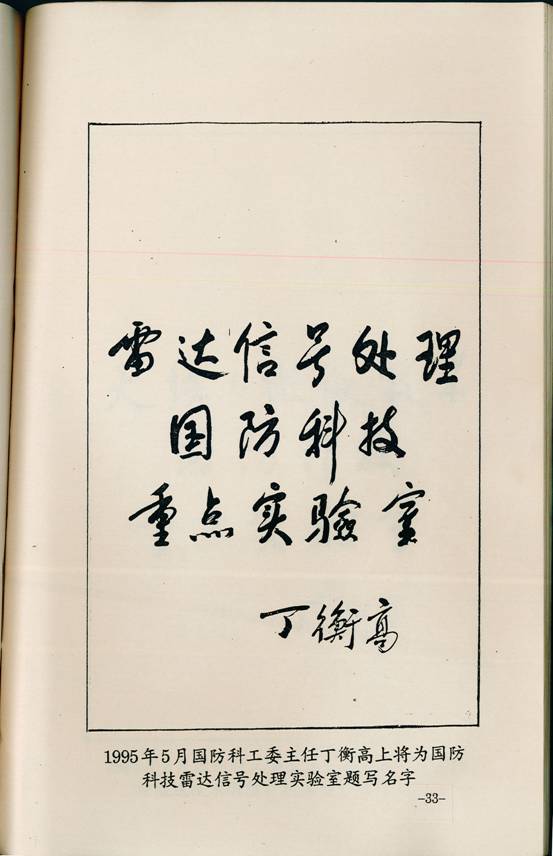 雷达信号处理
国防科技
重点实驗室
丁衡高
1995年5月国防科工委主任丁衡高上将为国防
科技雷达信号处理实验室题写名字
-33-